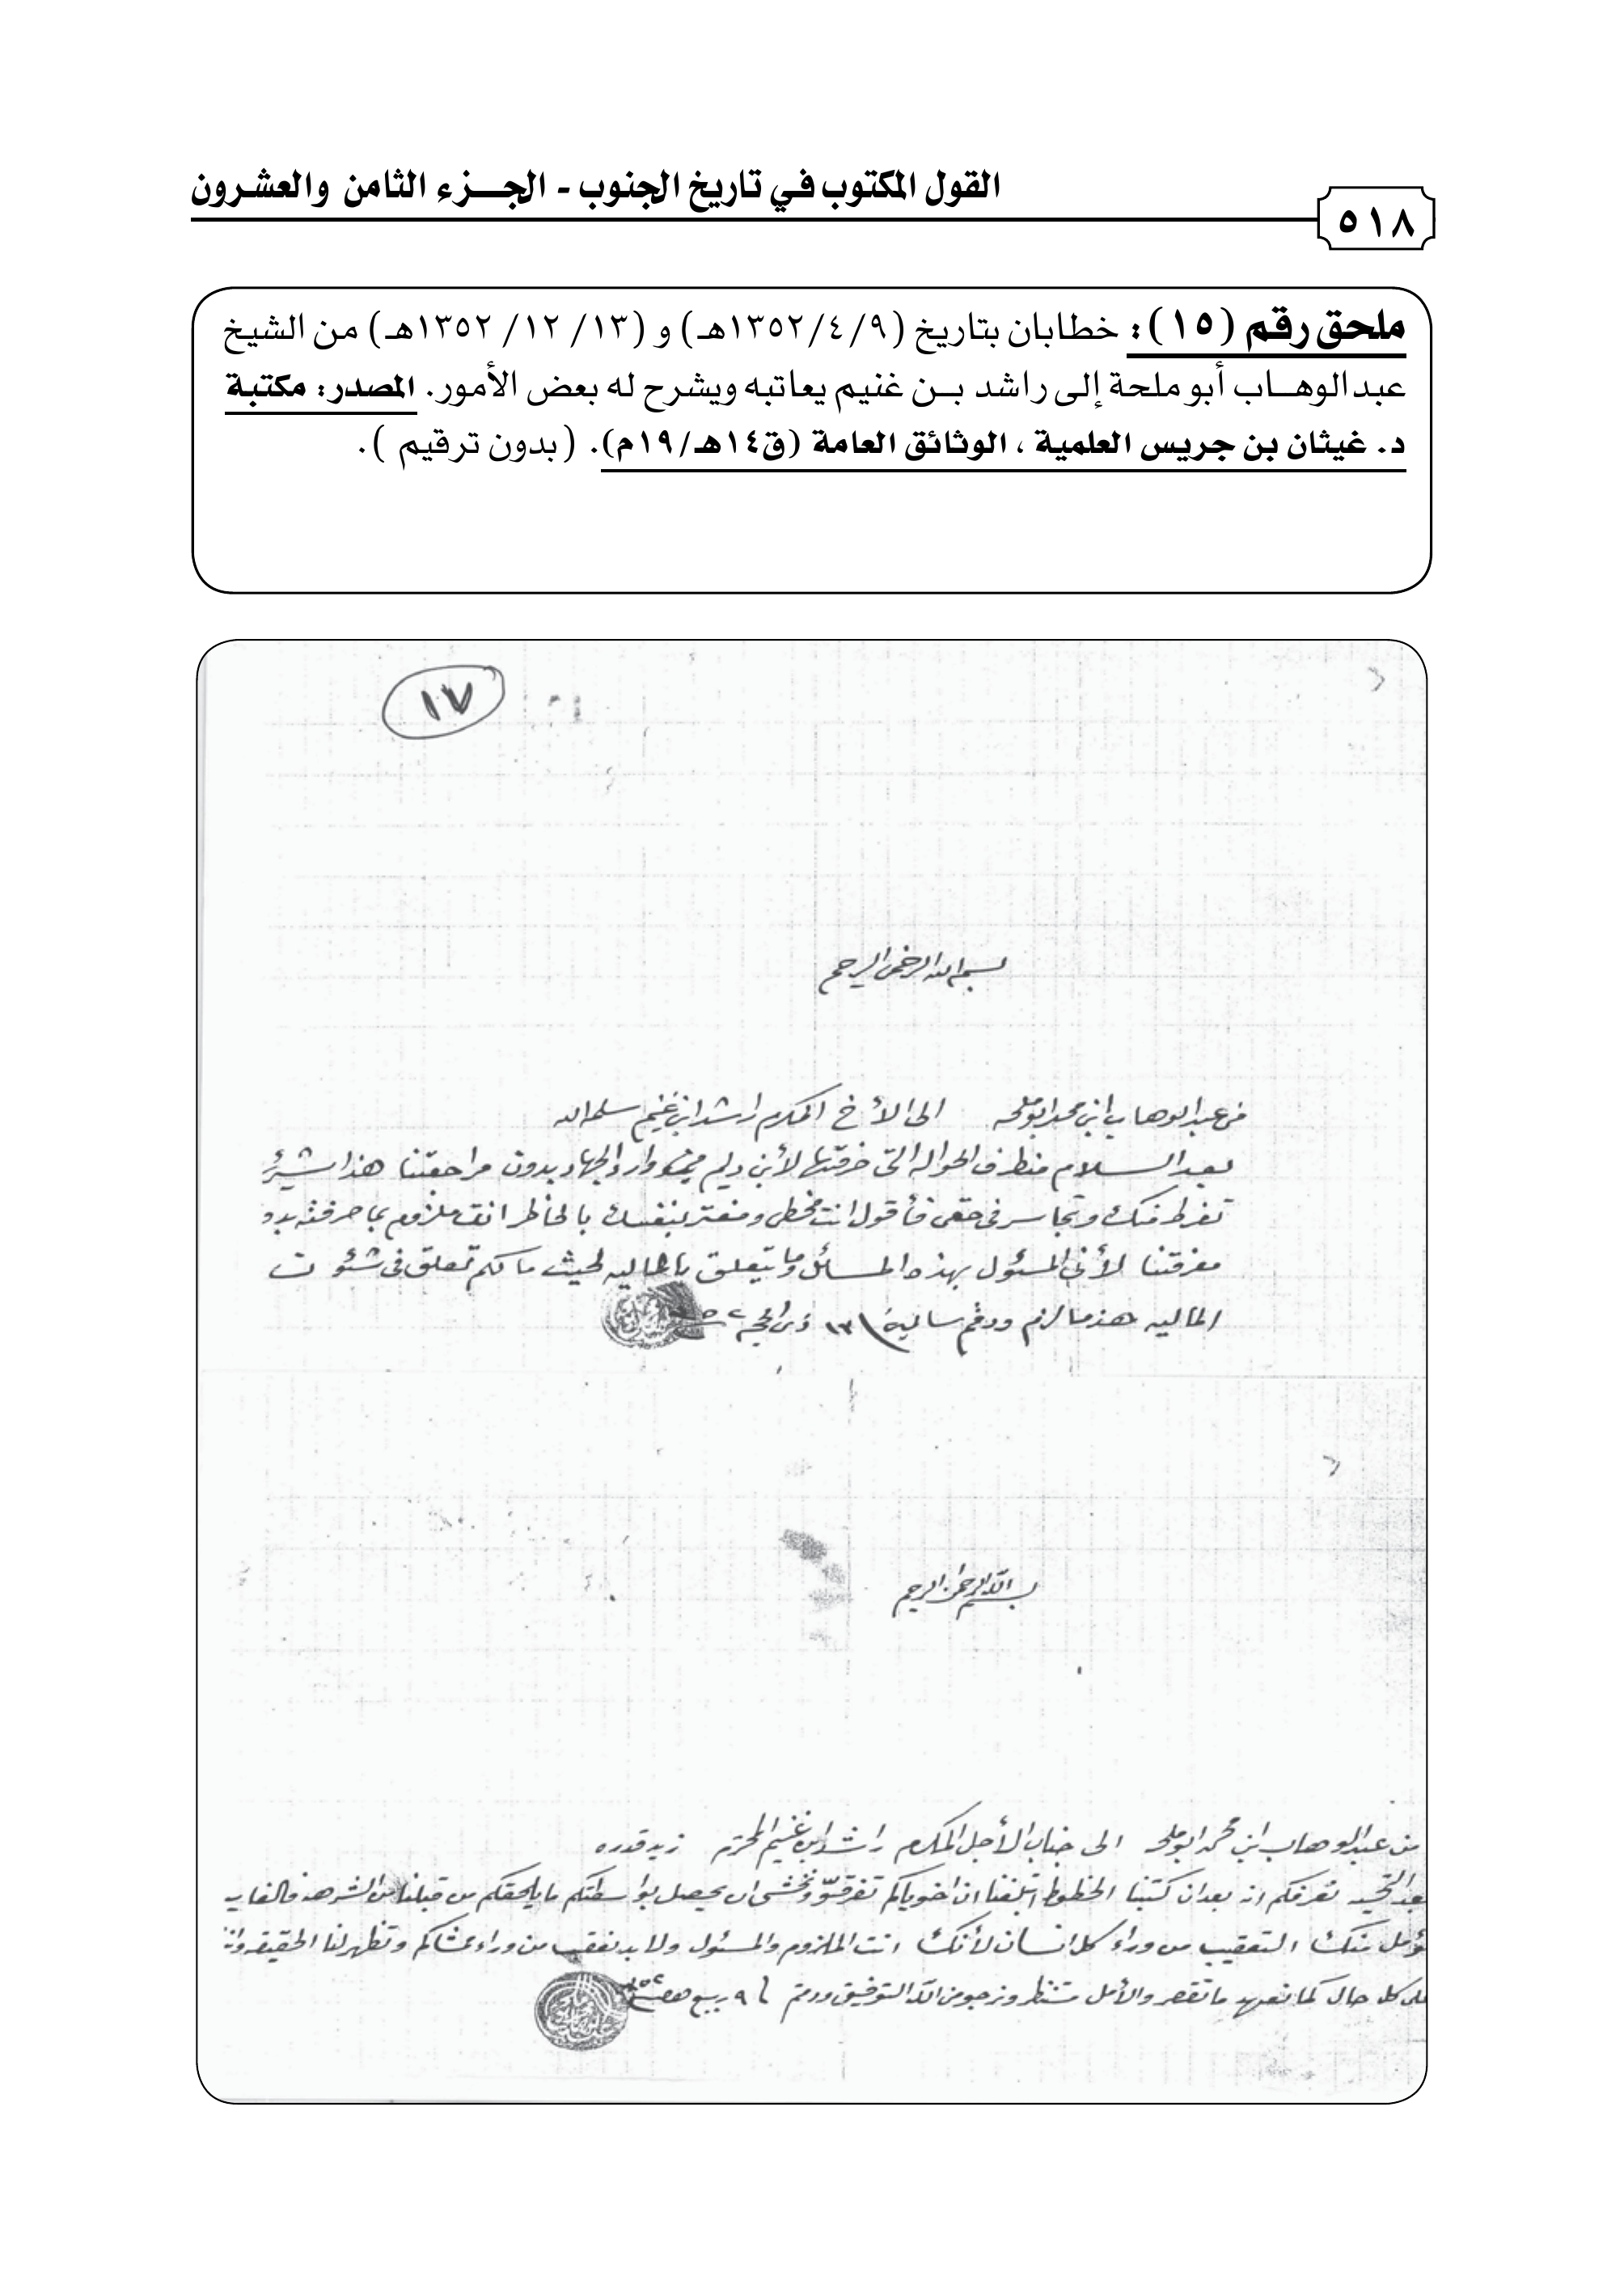 القول المكتوب في تاريخ الجنوب - الجـــزء الثامن والعشرون
٥١٨
ملحق رقم (١٥): خطابان بتاريخ (١٣٥٢/٤/٩هـ) و (١٣/ ١٢/ ١٣٥٢هـ) من الشيخ
عبدالوهـاب أبو ملحة إلى راشد بـن غنيم يعاتبه ويشرح له بعض الأمور. المصدر: مكتبة
د. غيثان بن جريس العلمية ، الوثائق العامة (ق١٤هـ/١٩م). (بدون ترقيم ).
١٧
بسم الله الرحمن الرحيم
من عبدالوهاب ابن محمد ابوملحه الى الأخ المكرم راشد ابن غنيم سلمه الله
بعد السلام من طرف الحواله التى صرفتها لأبن دليم من وارد الجهاد بدون مراجعتنا هذا شيئ
تفرط منك وتجاسر فى حقى فأقول انت مخطى ومغتر بنفسك بالخاطر انك ملزوم بما صرفته بدو
معرفتنا لأنى المسئول بهذه المسائل وما يتعلق بالماليه لحيث ما لكم تعلق فى شئون
الماليه هذا ما لزم ودمتم سالمين ١٣ ذى الحجه ٥٢
بسم الله الرحمن الرحيم
من عبدالوهاب ابن محمد ابوملحه الى جناب الأجل المكرم راشد ابن غنيم المحترم زيد قدره
بعد التحيه نعرفكم انه بعد ان كتبنا الخطوط ابلغنا ان اخوياكم تفرقوا ونخشى ان يحصل بواسطتكم ما يلحقكم من قبلنا من الشرهه فالغايه
نؤمل منك التعقيب من وراء كل انسان لأنك انت الملزوم والمسئول ولا بد نعقب من وراء ممشاكم وتظهر لنا الحقيقه وانت
على كل حال كما نعهد ما تقصر والأمل منتظر ونرجو من الله التوفيق ودمتم ٩ ربيع